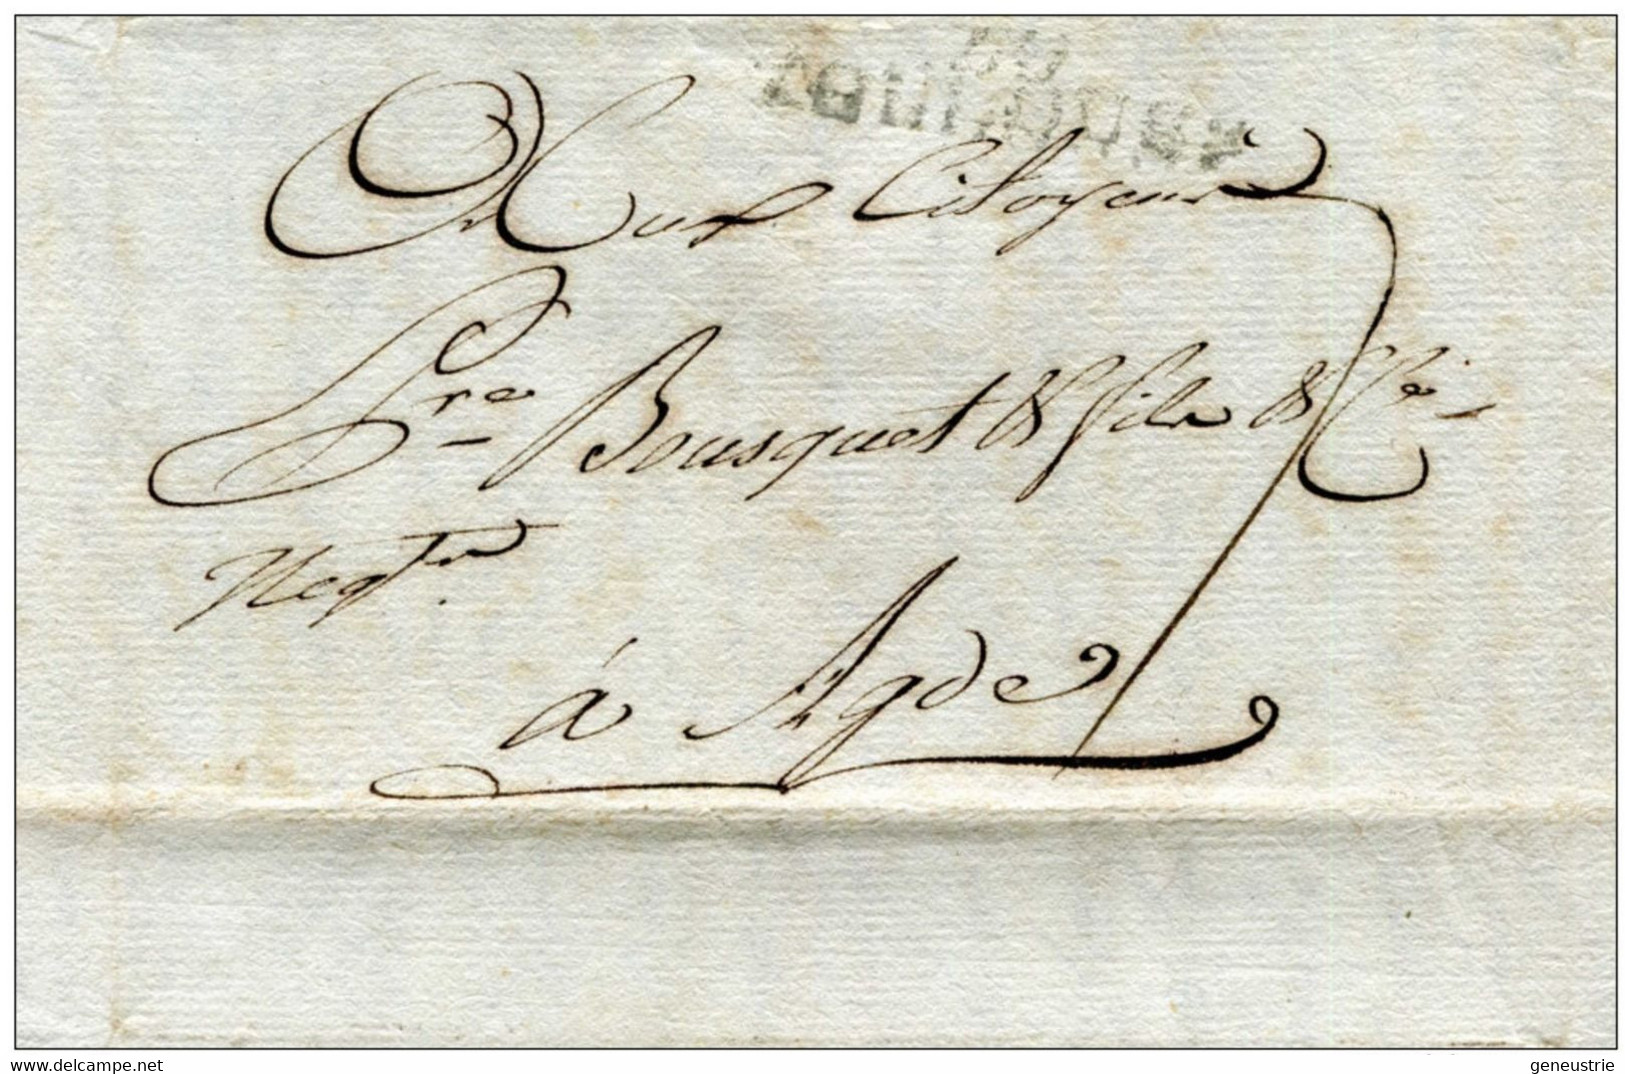 Aux Citoyens
Bousquet & fils & Cie
Negts
à Agde
www.delcampe.net
geneustrie